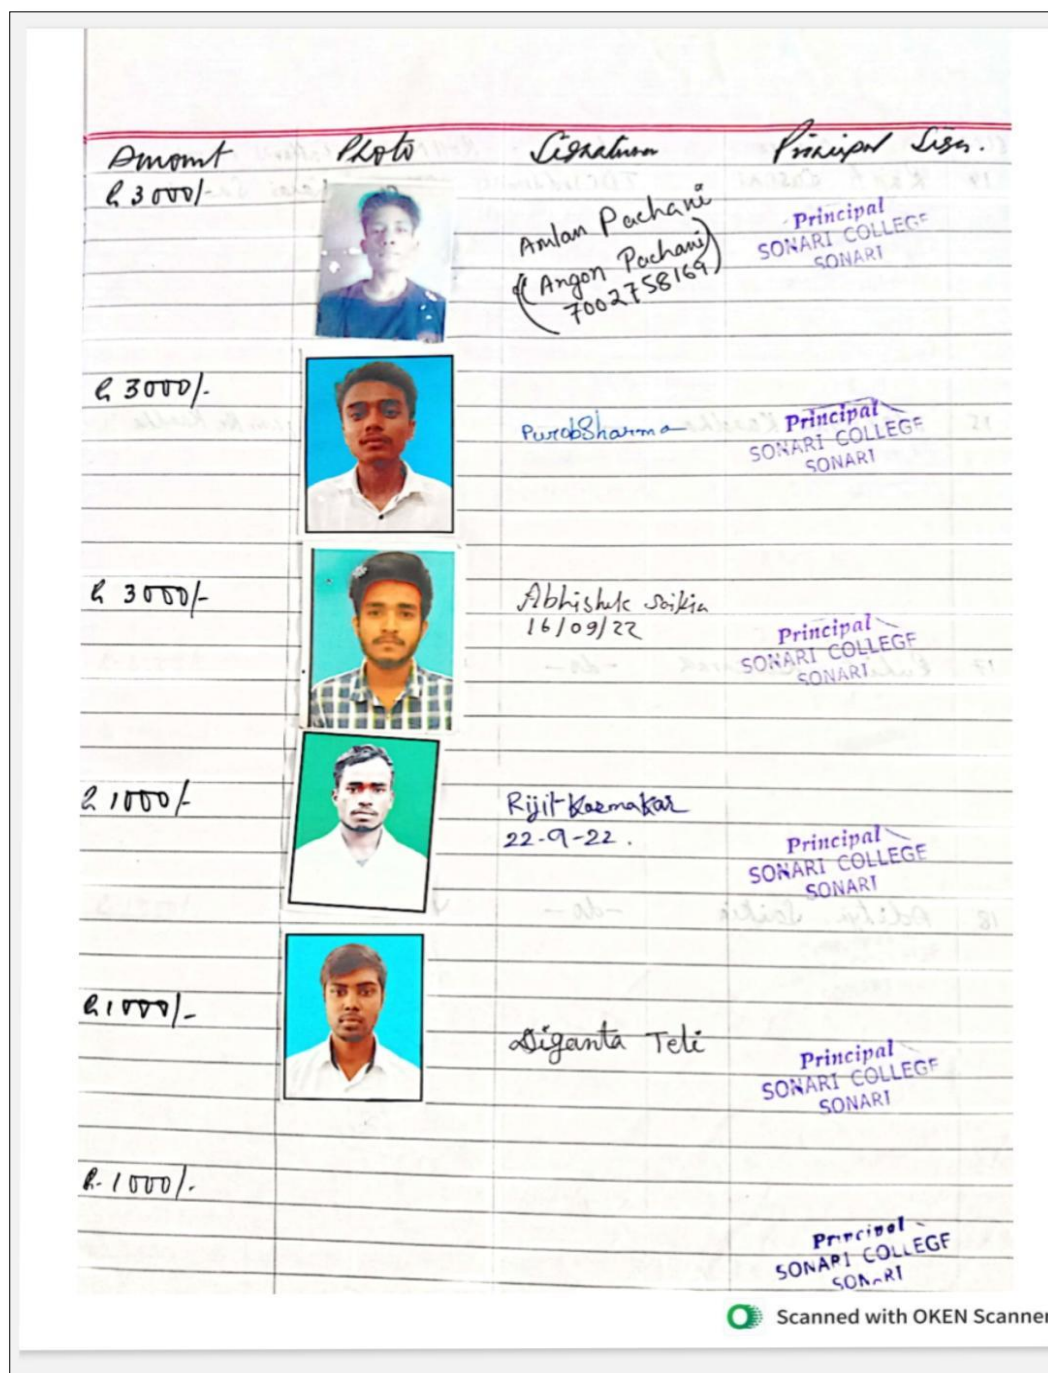 Amount Photo Signature Principal Sign.
₹ 3000/-
Amlan Pachani
(Angon Pachani)
7002758169
Principal
SONARI COLLEGE
SONARI
₹ 3000/-
PurobSharma
Principal
SONARI COLLEGE
SONARI
₹ 3000/-
Abhishek Saikia
16/09/22
Principal
SONARI COLLEGE
SONARI
₹ 1000/-
Rijit Karmakar
22-9-22.
Principal
SONARI COLLEGE
SONARI
₹ 1000/-
Diganta Teli
Principal
SONARI COLLEGE
SONARI
₹ 1000/-
Principal
SONARI COLLEGE
SONARI
Scanned with OKEN Scanner